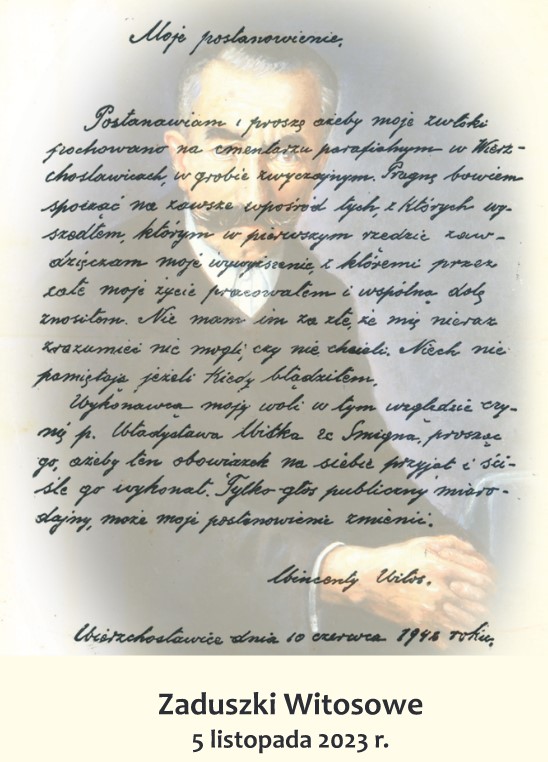 Moje postanowienie.
Postanawiam i proszę ażeby moje zwłoki
pochowano na cmentarzu parafialnym w Wierz-
chosławicach, w grobie zwyczajnym. Pragnę bowiem
spocząć na zawsze wpośród tych, z których wy-
szedłem, którym w pierwszym rzędzie zaw-
dzięczam moje wywyższenie, z któremi przez
całe moje życie pracowałem i wspólną dolę
znosiłem. Nie mam im za złe, że mię nieraz
zrozumieć nie mogli, czy nie chcieli. Niech nie
pamiętają jeżeli kiedy błądziłem.
Wykonawcą mojej woli w tym względzie czy-
nię p. Władysława Witka ze Śmigna, prosząc
go, ażeby ten obowiązek na siebie przyjął i ści-
śle go wykonał. Tylko głos publiczny miaro-
dajny, może moje postanowienie zmienić.
Wincenty Witos.
Wierzchosławice dnia 10 czerwca roku.
Zaduszki Witosowe
5 listopada 2023 r.